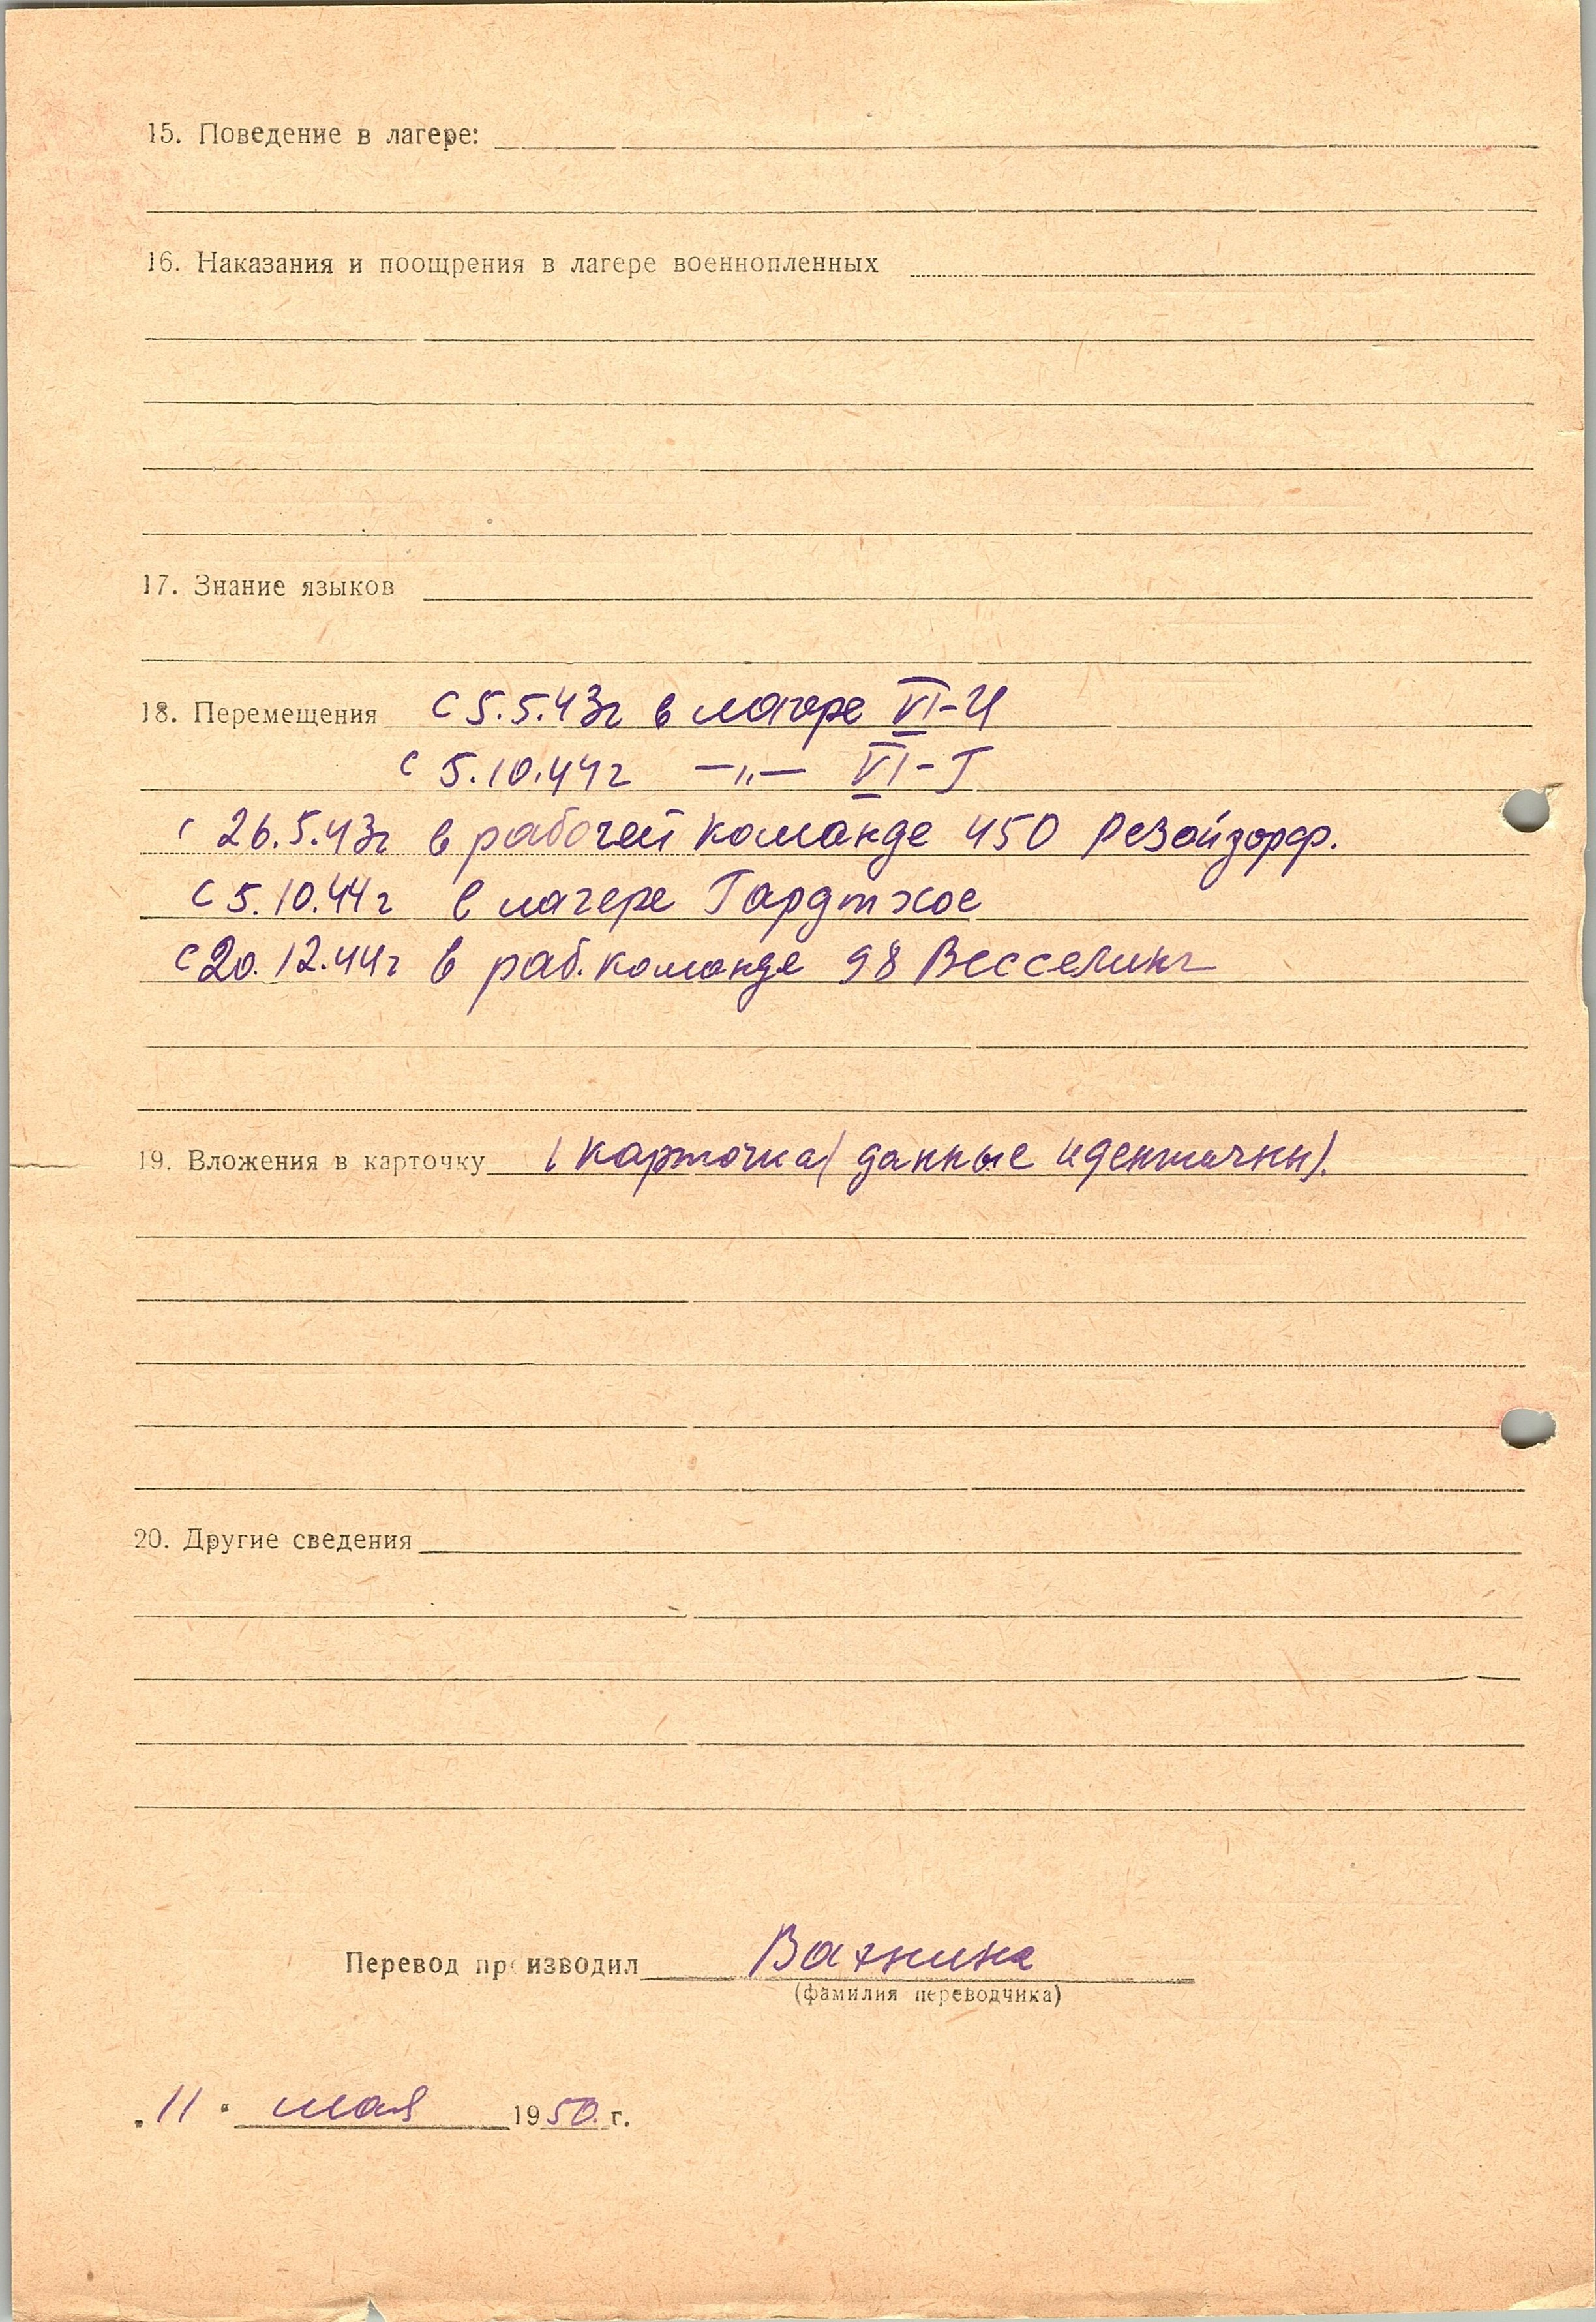 15. Поведение в лагере:
16. Наказания и поощрения в лагере военнопленных
17. Знание языков
18. Перемещения с 5.5.43г в лагере VI-И
с 5.10.44г —„— VI-Г
с 26.5.43г в рабочей команде 450
с 5.10.44г в лагере Гардтхое
с 20.12.44г в раб. команде 98 Весселинг
19. Вложения в карточку 1 карточка (данные идентичны).
20. Другие сведения
Перевод производил Вахнина
(фамилия переводчика)
„11" мая 1950 г.